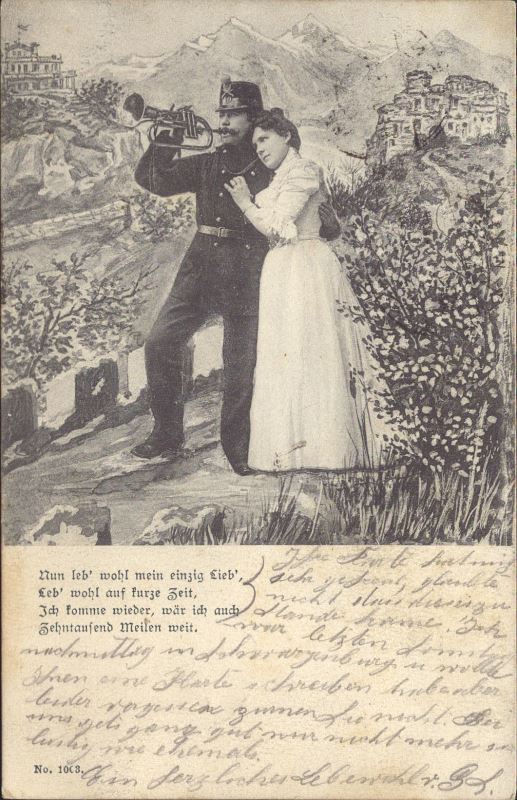 Nun leb' wohl mein einzig Lieb',
Leb' wohl auf kurze Zeit,
Ich komme wieder, wär ich auch
Zehntausend Meilen weit.
Ihre Karte hat mich
sehr gefreut, glaubte
nicht dass dieses zu
Stande käme. Ich
war letzten Sonntag
nachmittag in Schwarzenburg u wollte
Ihnen eine Karte schreiben habe aber
leider vergessen zürnen Sie nicht. Bei
uns gets ganz gut nur nicht mehr so
lustig wie ehemals.
No. 1003.
Ein herzliches Lebewohl v.